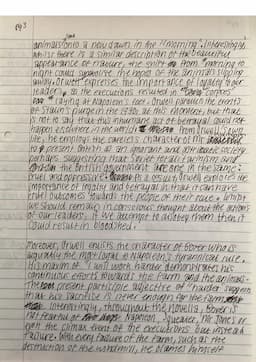 pg 3
animals into a new dawn in the "morning". Interestingly,
whilst there is a similar description of the beautiful
appearance of nature, the shift from "morning" to
night could symbolise the hopes of the animals slipping
away. Orwell expresses the importance of loyalty to your
leader, as the executions resulted in "corpses"
"laying at Napoleon's feet". Orwell parallels the events
of Stalin's purge in the 1930s at this moment, but that
is not to say that this inhumane act of betrayal does not
happen elsewhere in the world. From Orwell's own
life, he employs the careless character of Mr
to present Britain as an
perhaps suggesting that Soviet totalitarianism and
the British government are one in the same:
cruel and oppressive. As a result, Orwell explores the
importance of loyalty and betrayal in that it can have
cruel outcomes towards the people of their rule.
we should remain in conscious thought about the actions
of our leaders; if we attempt to disobey them then it
could result in bloodshed.
Moreover, Orwell enlists the character of Boxer who is
arguably the most loyal to Napoleon's tyrannical rule.
His maxim of "I will work harder" demonstrates his
continuous efforts towards the farm and the animals.
The present participle adjective of "harder" suggests
that his sacrifice is never enough for the farm.
Interestingly, throughout the novella, Boxer is
not Napoleon, Squealer, Mr Jones or
even the climax event of the executions but more a
failure. With every failure of the farm, such as the
destruction of the windmill, he blames himself